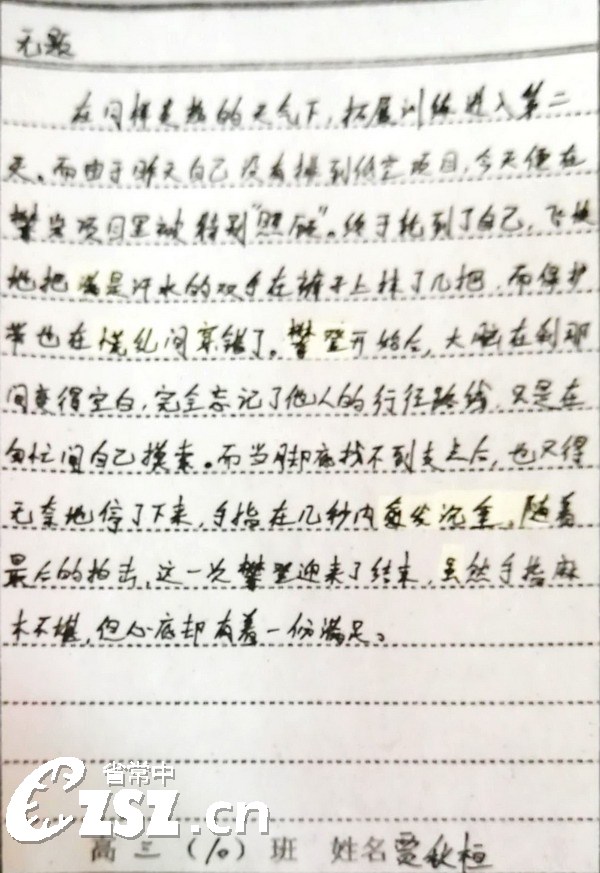 无题
在同样炎热的天气下，拓展训练进入第二
天。而由于昨天自己没有操到低空项目，今天便在
攀岩项目里被特别"照顾"。终于轮到了自己，飞快
地把满是汗水的双手在裤子上抹了几把，而保护
带也在慌乱间穿错了。攀登开始后，大脑在刹那
间变得空白，完全忘记了他人的行径路线，只是在
匆忙间自己摸索。而当脚底找不到支点后，也只得
无奈地停了下来，手指在几秒内愈发沉重。随着
最后的拍击，这一次攀登迎来了结束，虽然手指麻
木不堪，但心底却有着一份满足。
省常中
czsz.cn
高三（10）班 姓名贾秋桓